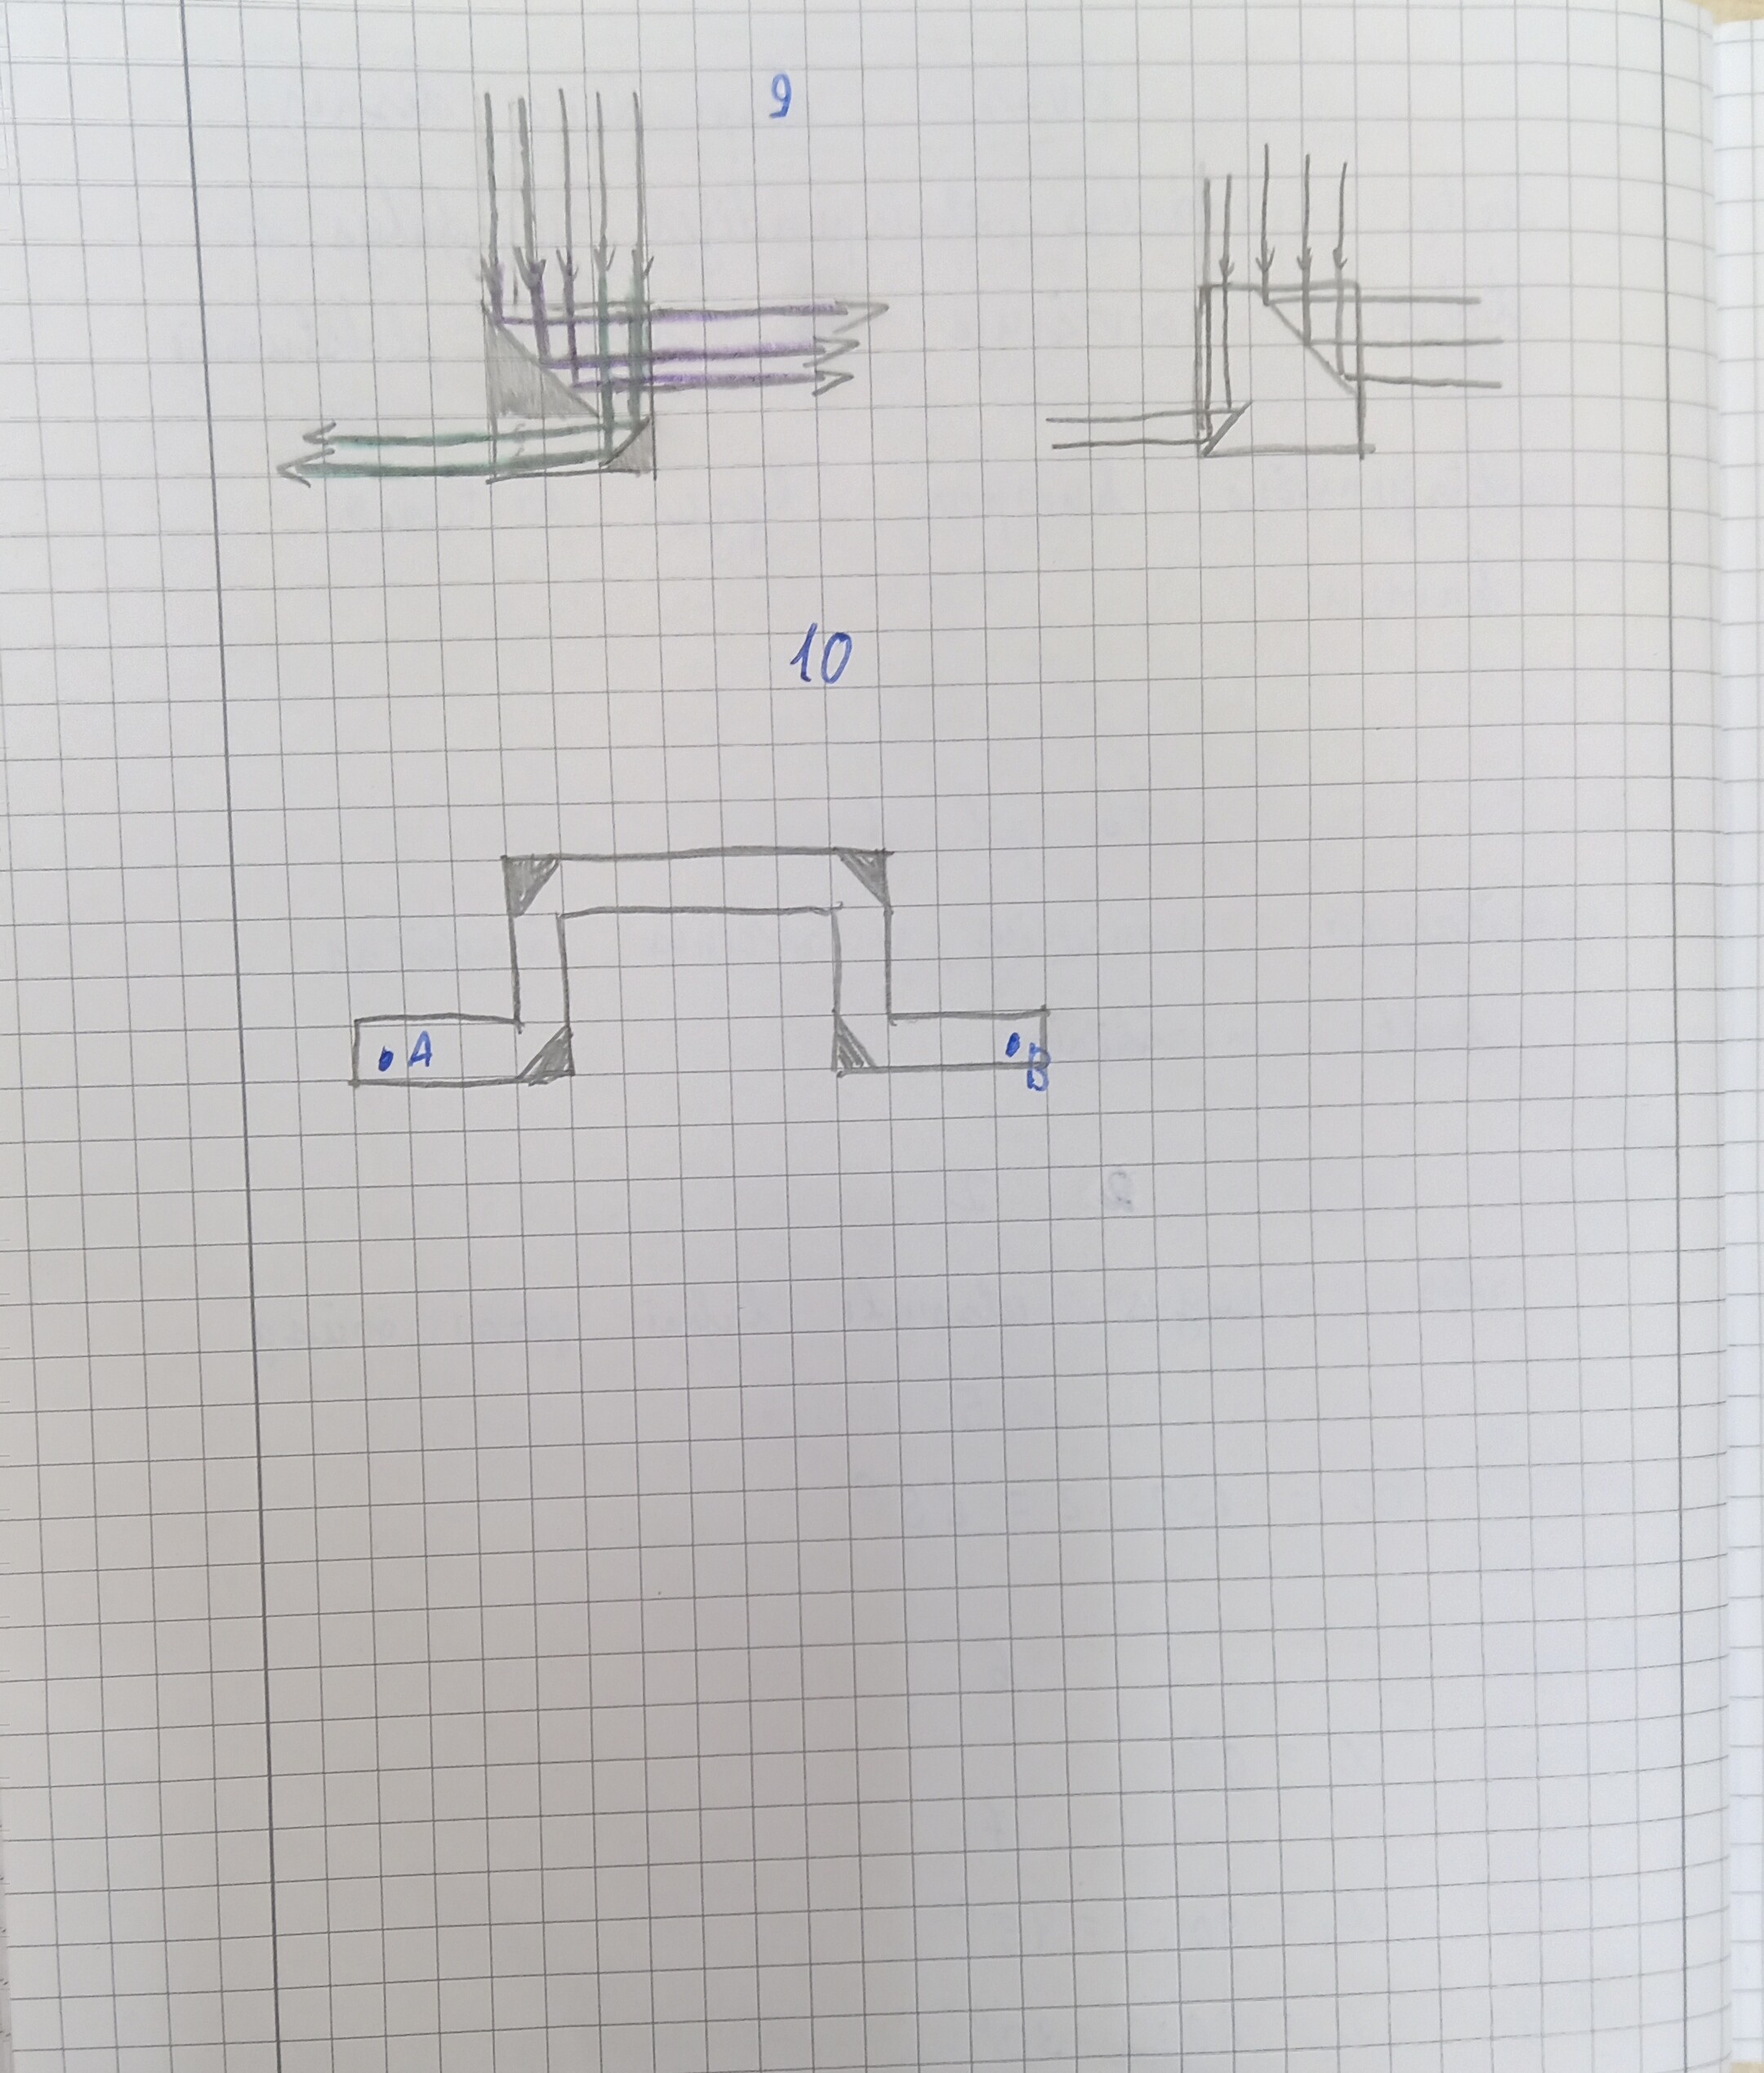 9
10
A
B